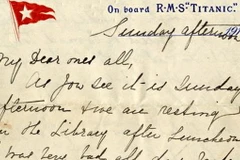 On board R·M·S "Titanic."
Sunday afternoon
My Dear ones all,
As you see it is Sunday
afternoon & we are resting
in the Library after Luncheon
I was very bad all day